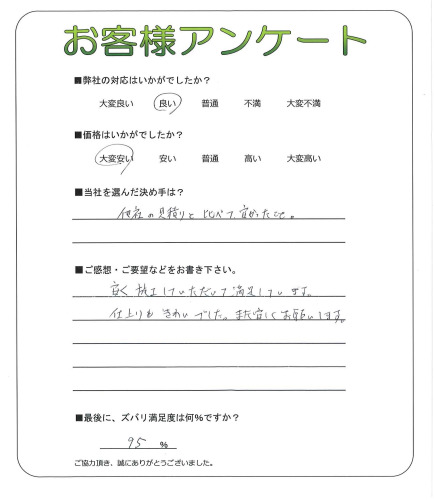 お客様アンケート
■弊社の対応はいかがでしたか？
大変良い 良い 普通 不満 大変不満
■価格はいかがでしたか？
大変安い 安い 普通 高い 大変高い
■当社を選んだ決め手は？
他社の見積りと比べて安かったこと。
■ご感想・ご要望などをお書き下さい。
安く施工していただいて満足しています。
仕上りもきれいでした。また宜しくお願いします。
■最後に、ズバリ満足度は何％ですか？
95 %
ご協力頂き、誠にありがとうございました。